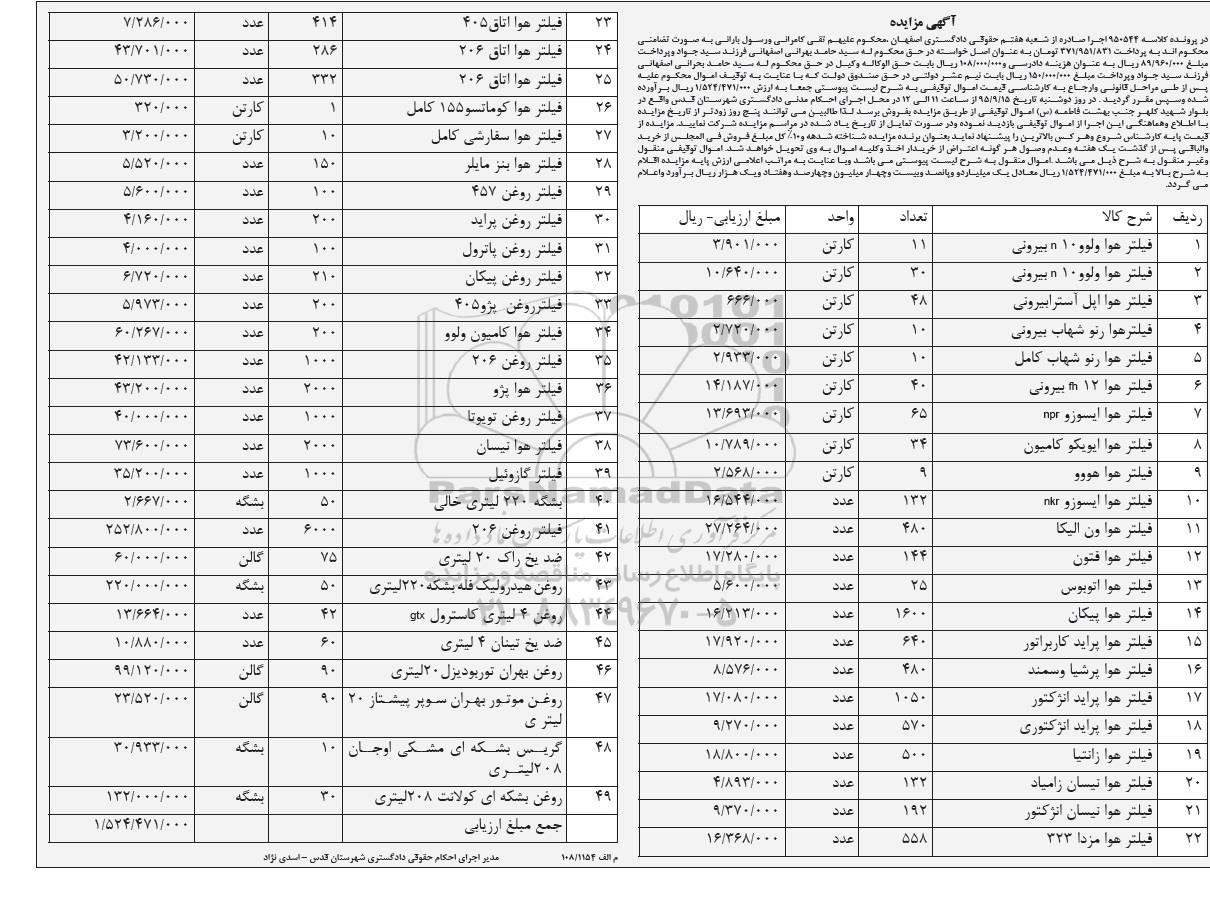 آگهی مزایده
در پرونده کلاسه ۹۵۰۵۴۴ اجرا صادره از شعبه هفتم حقوقی دادگستری اصفهان .محکوم علیهم تقی کامرانی ورسول بارانی به صورت تضامنی
محکوم اند به پرداخت ۳۷۱/۹۵۱/۸۳۱ تومان به عنوان اصل خواسته در حق محکوم له سید حامد بهرانی اصفهانی فرزند سید جواد وپرداخت
مبلغ ۸۹/۹۶۰/۰۰۰ ریال به عنوان هزینه دادرسی و۱۰۸/۰۰۰/۰۰۰ ریال بابت حق الوکاله وکیل در حق محکوم له سید حامد بحرانی اصفهانی
فرزند سید جواد وپرداخت مبلغ ۱۵۰/۰۰۰/۰۰۰ ریال بابت نیم عشر دولتی در حق صندوق دولت که با عنایت به توقیف اموال محکوم علیه
پس از طی مراحل قانونی وارجاع به کارشناسی قیمت اموال توقیفی به شرح لیست پیوستی جمعا به ارزش ۱/۵۲۴/۴۷۱/۰۰۰ ریال بر آورده
شده وسپس مقرر گردید . در روز دوشنبه تاریخ ۹۵/۹/۱۵ از ساعت ۱۱ الی ۱۲ در محل اجرای احکام مدنی دادگستری شهرستان قدس واقع در
بلوار شهید کلهر جنب بهشت فاطمه (س) اموال توقیفی از طریق مزایده بفروش برسد لذا طالبین می توانند پنج روز زودتر از تاریخ مزایده
با اطلاع وهماهنگی این اجرا از اموال توقیفی بازدید نموده ودر صورت تمایل از تاریخ یاد شده در مراسم مزایده شرکت نمایید. مزایده از
قیمت پایه کارشناس شروع وهر کس بالاترین را پیشنهاد نماید بعنوان برنده مزایده شناخته شدهه و۱۰٪ کل مبلغ فروش فی المجلس از خرید
والباقی پس از گذشت یک هفته وعدم وصول هر گونه اعتراض از خریدار اخذ وکلیه اموال به وی تحویل خواهد شد. اموال توقیفی منقول
وغیر منقول به شرح ذیل می باشد .اموال منقول به شرح لیست پیوستی می باشد وبا عنایت به مراتب اعلامی ارزش پایه مزایده اقلام
به شرح بالا به مبلغ ۱/۵۲۴/۴۷۱/۰۰۰ ریال معادل یک میلیاردو وپانصد وبیست وچهار میلیون وچهارصد وهفتاد ویک هزار ریال بر آورد واعلام
می گردد.
ردیف شرح کالا تعداد واحد مبلغ ارزیابی- ریال
۱ فیلتر هوا ولوو۱۰ n بیرونی ۱۱ کارتن ۳/۹۰۱/۰۰۰
۲ فیلتر هوا ولوو۱۰ n بیرونی ۳۰ کارتن ۱۰/۶۴۰/۰۰۰
۳ فیلتر هوا اپل آسترابیرونی ۴۸ کارتن ۶۶۶/۰۰۰
۴ فیلترهوا رنو شهاب بیرونی ۱۰ کارتن ۲/۷۲۰/۰۰۰
۵ فیلتر هوا رنو شهاب کامل ۱۰ کارتن ۲/۹۳۳/۰۰۰
۶ فیلتر هوا ۱۲ fh بیرونی ۴۰ کارتن ۱۴/۱۸۷/۰۰۰
۷ فیلتر هوا ایسوزو npr ۶۵ کارتن ۱۳/۶۹۳/۰۰۰
۸ فیلتر هوا ایویکو کامیون ۳۴ کارتن ۱۰/۷۸۹/۰۰۰
۹ فیلتر هوا هووو ۹ کارتن ۲/۵۶۸/۰۰۰
۱۰ فیلتر هوا ایسوزو nkr ۱۳۲ عدد ۱۶/۵۴۴/۰۰۰
۱۱ فیلتر هوا ون الیکا ۴۸۰ عدد ۲۷/۲۶۴/۰۰۰
۱۲ فیلتر هوا فتون ۱۴۴ عدد ۱۷/۲۸۰/۰۰۰
۱۳ فیلتر هوا اتوبوس ۲۵ عدد ۵/۶۰۰/۰۰۰
۱۴ فیلتر هوا پیکان ۱۶۰۰ عدد ۱۶/۲۱۳/۰۰۰
۱۵ فیلتر هوا پراید کاربراتور ۶۴۰ عدد ۱۷/۹۲۰/۰۰۰
۱۶ فیلتر هوا پرشیا وسمند ۴۸۰ عدد ۸/۵۷۶/۰۰۰
۱۷ فیلتر هوا پراید انژکتور ۱۰۵۰ عدد ۱۷/۰۸۰/۰۰۰
۱۸ فیلتر هوا پراید انژکتوری ۵۷۰ عدد ۹/۲۷۰/۰۰۰
۱۹ فیلتر هوا زانتیا ۵۰۰ عدد ۱۸/۸۰۰/۰۰۰
۲۰ فیلتر هوا نیسان زامیاد ۱۳۲ عدد ۴/۸۹۳/۰۰۰
۲۱ فیلتر هوا نیسان انژکتور ۱۹۲ عدد ۹/۳۷۰/۰۰۰
۲۲ فیلتر هوا مزدا ۳۲۳ ۵۵۸ عدد ۱۶/۳۶۸/۰۰۰
۲۳ فیلتر هوا اتاق۴۰۵ ۴۱۴ عدد ۷/۲۸۶/۰۰۰
۲۴ فیلتر هوا اتاق ۲۰۶ ۲۸۶ عدد ۴۳/۷۰۱/۰۰۰
۲۵ فیلتر هوا اتاق ۲۰۶ ۳۳۲ عدد ۵۰/۷۳۰/۰۰۰
۲۶ فیلتر هوا کوماتسو۱۵۵ کامل ۱ کارتن ۳۲۰/۰۰۰
۲۷ فیلتر هوا سفارشی کامل ۱۰ کارتن ۳/۲۰۰/۰۰۰
۲۸ فیلتر هوا بنز مایلر ۱۵۰ عدد ۵/۵۲۰/۰۰۰
۲۹ فیلتر روغن ۴۵۷ ۱۰۰ عدد ۵/۶۰۰/۰۰۰
۳۰ فیلتر روغن پراید ۲۰۰ عدد ۴/۱۶۰/۰۰۰
۳۱ فیلتر روغن پاترول ۱۰۰ عدد ۴/۰۰۰/۰۰۰
۳۲ فیلتر روغن پیکان ۲۱۰ عدد ۶/۷۲۰/۰۰۰
۳۳ فیلترروغن پژو۴۰۵ ۲۰۰ عدد ۵/۹۷۳/۰۰۰
۳۴ فیلتر هوا کامیون ولوو ۲۰۰ عدد ۶۰/۲۶۷/۰۰۰
۳۵ فیلتر روغن ۲۰۶ ۱۰۰۰ عدد ۴۲/۱۳۳/۰۰۰
۳۶ فیلتر هوا پژو ۲۰۰۰ عدد ۴۳/۲۰۰/۰۰۰
۳۷ فیلتر روغن تویوتا ۱۰۰۰ عدد ۴۰/۰۰۰/۰۰۰
۳۸ فیلتر هوا نیسان ۲۰۰۰ عدد ۷۳/۶۰۰/۰۰۰
۳۹ فیلتر گازوئیل ۱۰۰۰ عدد ۳۵/۲۰۰/۰۰۰
۴۰ بشگه ۲۲۰ لیتری خالی ۵۰ بشگه ۲/۶۶۷/۰۰۰
۴۱ فیلتر روغن ۲۰۶ ۶۰۰۰ عدد ۲۵۲/۸۰۰/۰۰۰
۴۲ ضد یخ راک ۲۰ لیتری ۷۵ گالن ۶۰/۰۰۰/۰۰۰
۴۳ روغن هیدرولیک فله بشکه۲۲۰لیتری ۵۰ بشگه ۲۲۰/۰۰۰/۰۰۰
۴۴ روغن ۴ لیتری کاسترول gtx ۴۲ عدد ۱۳/۶۶۴/۰۰۰
۴۵ ضد یخ تینان ۴ لیتری ۶۰ عدد ۱۰/۸۸۰/۰۰۰
۴۶ روغن بهران توربودیزل۲۰لیتری ۹۰ گالن ۹۹/۱۲۰/۰۰۰
۴۷ روغن موتور بهران سوپر پیشتاز ۲۰ ۹۰ گالن ۲۳/۵۲۰/۰۰۰
لیتر ی
۴۸ گریس بشکه ای مشکی اوجان ۱۰ بشگه ۳۰/۹۳۳/۰۰۰
۲۰۸لیتری
۴۹ روغن بشکه ای کولانت ۲۰۸لیتری ۳۰ بشگه ۱۳۲/۰۰۰/۰۰۰
جمع مبلغ ارزیابی ۱/۵۲۴/۴۷۱/۰۰۰
م الف ۱۰۸/۱۱۵۴ مدیر اجرای احکام حقوقی دادگستری شهرستان قدس – اسدی نژاد
ParsNamadData
مرکز فرآوری اطلاعات پارس نماد داده ها
پایگاه اطلاع رسانی مناقصه و مزایده
۰۲۱-۸۸۳۴۹۶۷۰-۵